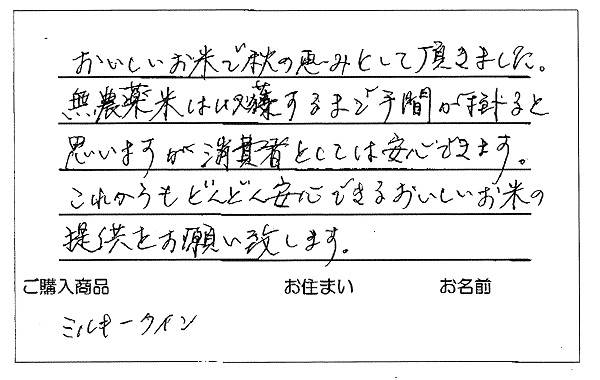 おいしいお米で秋の恵みとして頂きました。
無農薬米は収穫するまで手間が掛ると
思いますが消費者としては安心できます。
これからもどんどん安心できるおいしいお米の
提供をお願い致します。
ご購入商品 お住まい お名前
ミルキークイン